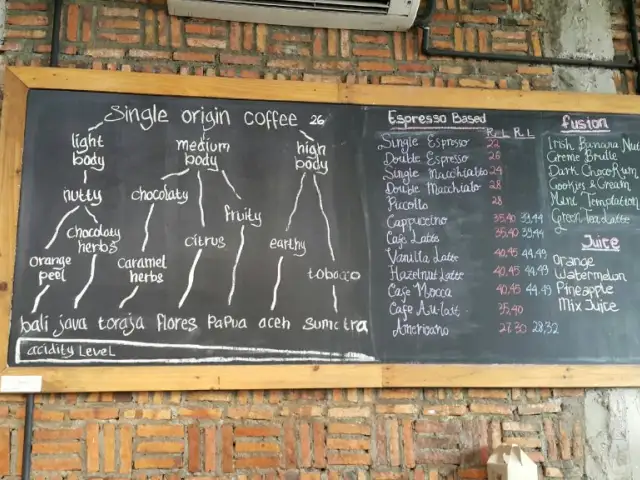 Single origin coffee 26
light body
medium body
high body
nutty
chocolaty
fruity
chocolaty herbs
citrus
earthy
orange peel
caramel herbs
tobacco
bali java toraja flores PaPua aceh sumatra
acidity Level
Espresso Based
R. L R. L
Single Espresso 22
Double Espresso 26
Single Macchiatto 24
Double Macchiato 28
Piccollo 28
Cappuccino 35,40 39,44
Cafe Latte 35,40 39,44
Vanilla Latte 40,45 44,49
Hazelnut Latte 40,45 44,49
Cafe Mocca 40,45 44,49
Cafe Au-lait 35,40
Americano 27,30 28,32
fusion
Irish Banana Nut
Creme Brulle
Dark Choco Rum
Cookies & Cream
Mint Temptation
Green Tea Latte
Juice
Orange
Watermelon
Pineapple
Mix Juice